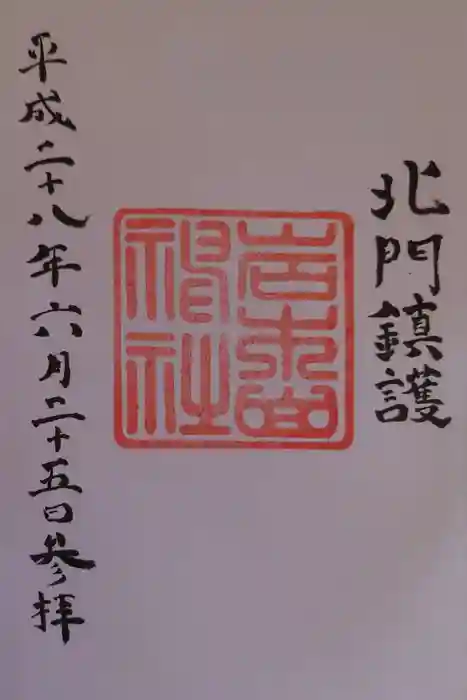 北門鎮護
岩木山
神社
平成二十八年六月二十五日参拝